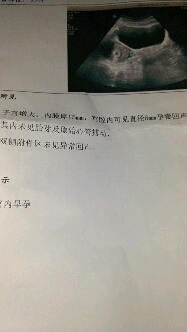 所见
子宫增大，内膜厚15mm，宫腔内可见直径8mm孕囊回声
其内未见胎芽及原始心管搏动。
双侧附件区未见异常回声
示
宫内早孕